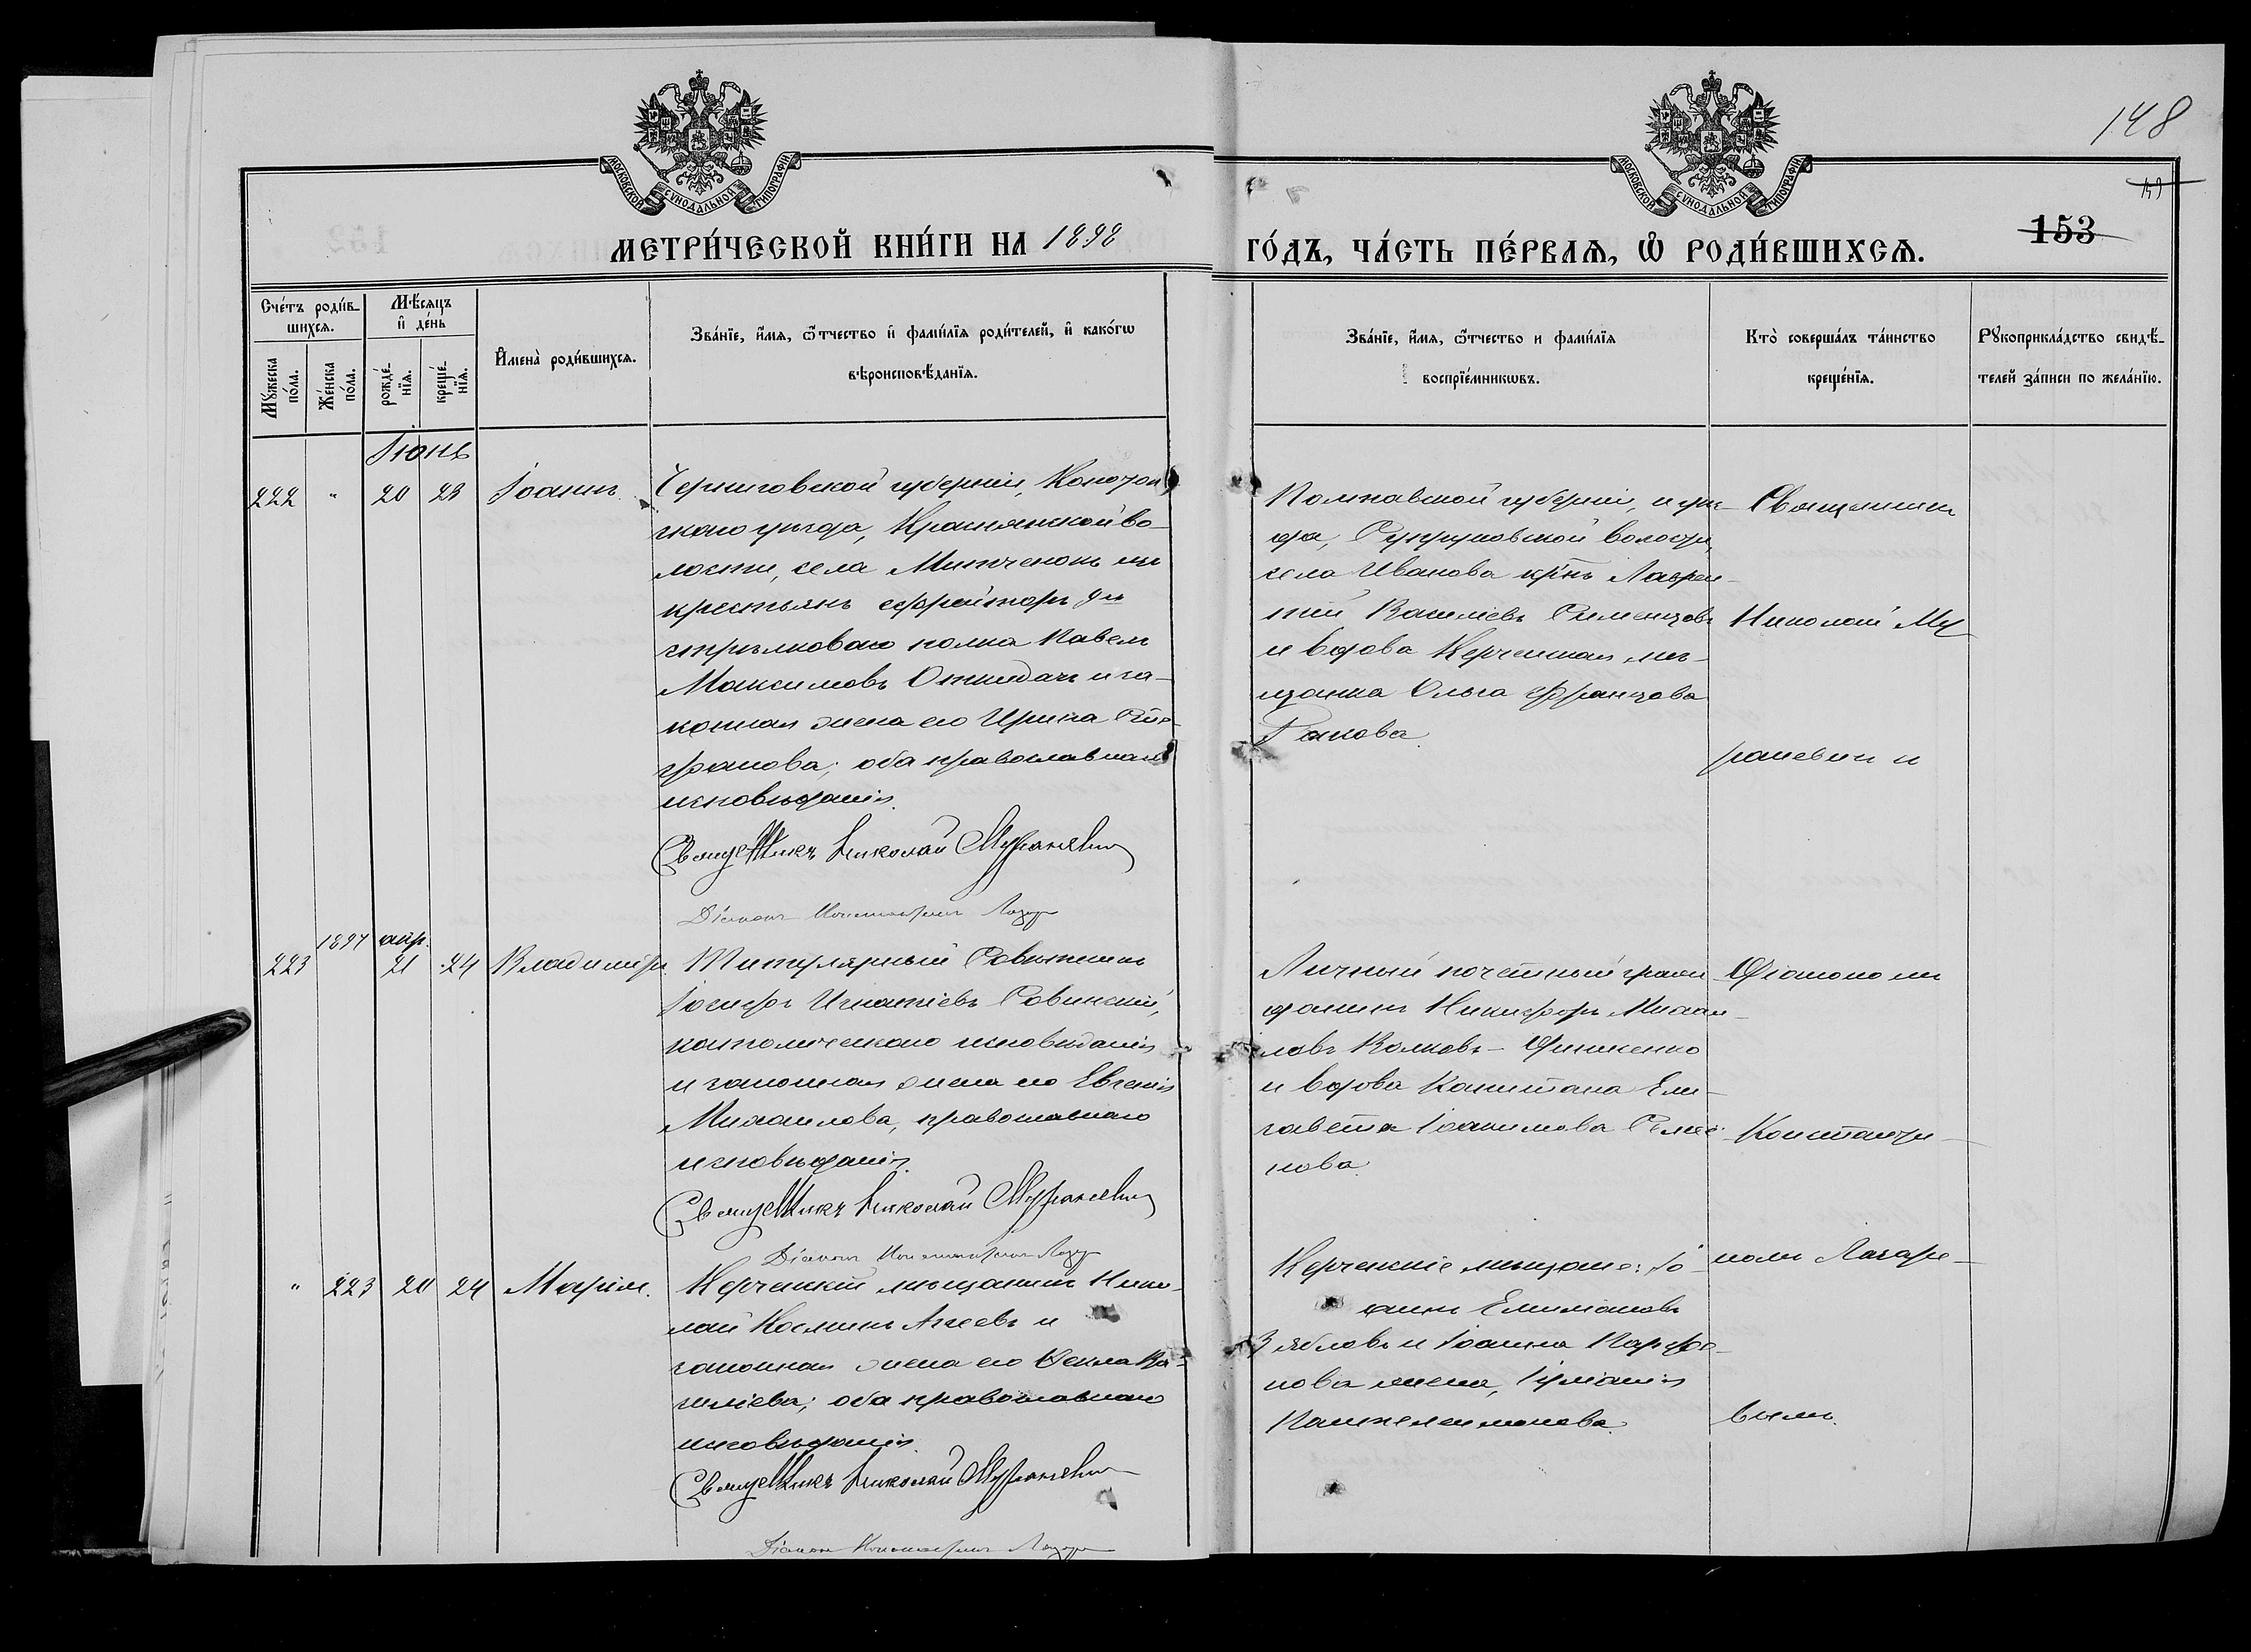 148
153
МОСКОВСКОЙ СѴНОДАЛЬНОЙ ТИПОГРАФІИ
МОСКОВСКОЙ СѴНОДАЛЬНОЙ ТИПОГРАФІИ
МЕТРИ́ЧЕСКОЙ КНИ́ГИ НА 1898
ГО́ДЪ, ЧА́СТЬ ПЕ́РВАѦ, Ѡ҆ РОДИ́ВШИХСѦ.
Сче́тъ роди́в-
шихсѧ.
Мꙋ́жеска по́ла.
Же́нска по́ла.
Мѣ́сѧцъ
и҆ де́нь
рожде́-
нїѧ.
креще́-
нїѧ.
И҆мена̀ роди́вшихсѧ.
Зва́нїе, и҆́мѧ, ѻ҆́тчество и҆ фами́лїѧ роди́телей, и҆ како́гѡ
вѣроисповѣ́данїѧ.
Зва́нїе, и҆́мѧ, ѻ҆́тчество и фами́лїѧ
воспрїе́мникѡвъ.
Кто̀ соверша́лъ та́инство
креще́нїѧ.
Рꙋкоприкла́дство свидѣ́-
телей за́писи по жела́нїю.
Іюнь
222 " 20 23 Іоаннъ.
Черниговской губерніи, Конотоп
скаго уѣзда, Краснянской во-
лости, села Митченокъ изъ
крестьянъ ефрейторъ
стрѣлковаго полка Павелъ
Максимовъ Откидачъ и за-
конная жена его Ирина
оба православнаго
исповѣданія.
Священникъ Николай Мураневич
Діаконъ Константинъ Лазар
Полтавской губерніи, и уѣз-
да, волости,
села Иванова кр-нъ Лаврен-
тій Василіевъ
и вдова Керченская мѣ-
щанка Ольга Францова
Священник
Николай Му
раневич и
1897 апр.
223 21 24 Владиміръ
Титулярный Совѣтникъ
Іосифъ Игнатіевъ Савинскій,
католическаго исповѣданія
и законная жена его Евгенія
Михаилова, православнаго
исповѣданія.
Священникъ Николай Мураневич
Діаконъ Константинъ Лазар
Личный почетный граж
данинъ Никифоръ Михаи-
ловъ Волковъ-
и вдова Капитана Ели-
завета Іоакимова
нова.
Діакономъ
Константи-
номъ Лазаре-
вымъ.
" 223 20 24 Марія.
Керченскій мѣщанинъ Нико-
лай Косминъ Агеевъ и
законная жена его Ѳекла Ва-
силіева; оба православнаго
исповѣданія.
Священникъ Николай Мураневич
Діаконъ Константинъ Лазар
Керченскіе мѣщане: Іо-
аннъ Емиліановъ
Зябловъ и Іоанна Парфе-
нова жена, Іуліанія
Пантелеимонова.